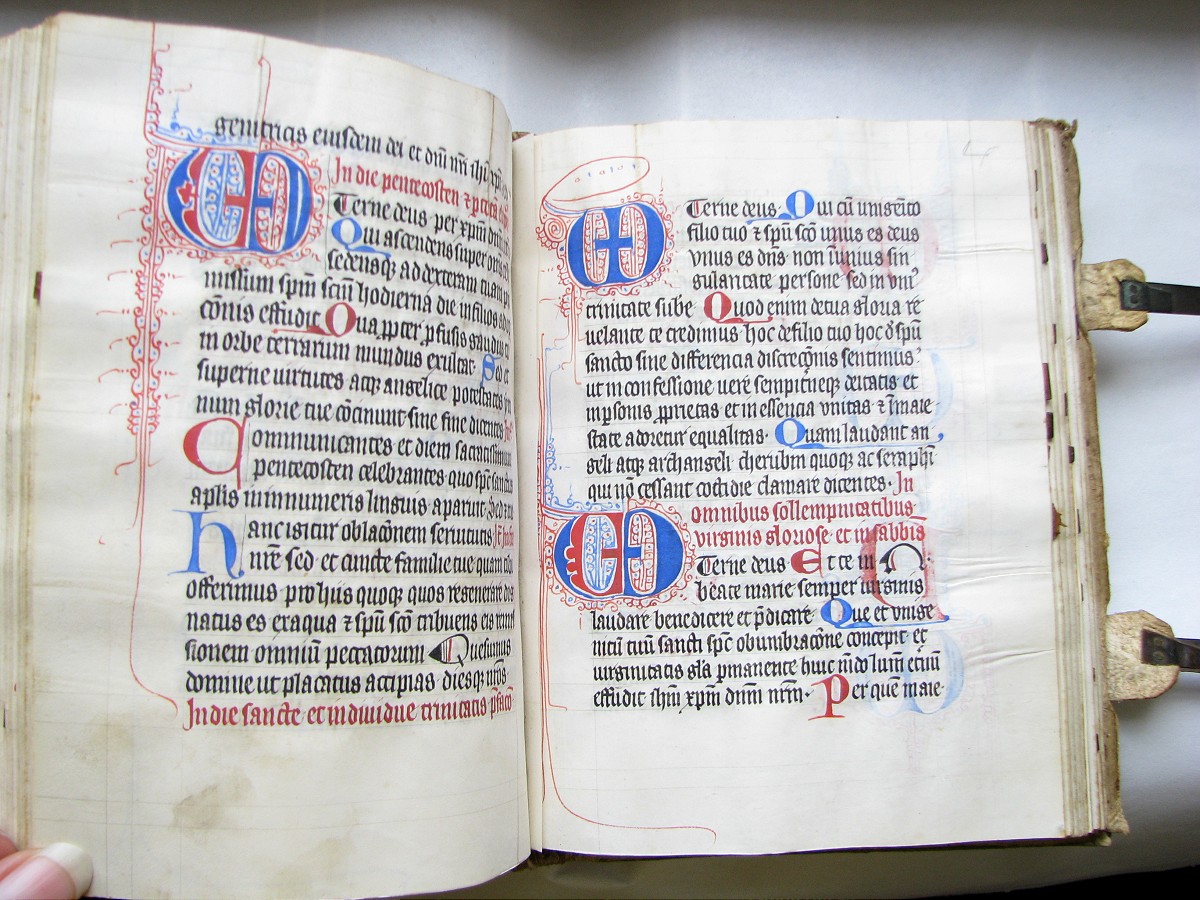 genitricis eiusdem dei et dnī nrī ihū xpī
In die pentecosten
Eterne deus per xpm̄ dnm̄
Qui ascendens super oms
sedensq; ad dexteram tuam
missum spm̄ scm̄ hodierna die in filios
cōnis effudit Qua ppter pfusis gaudiis
in orbe terrarum mundus exultat Sed et
superne uirtutes atq; angelice potestates
num glorie tue cōcinunt sine fine dicentes
Communicantes et diem sacratissimum
pentecosten celebrantes quo spc̄ sanctus
aplis in innumeris linguis aparuit Sed et
Hanc igitur oblacōnem seruitutis
nrē sed et cuncte familie tue quam tibi
offerimus pro hiis quoq; quos regenerare dig
natus es ex aqua ⁊ spū scō tribuens eis remis
sionem omniū peccatorum Quesumus
domine ut placatus accipias diesq; nrōs
In die sancte et indiuidue trinitatis pfacō
Eterne deus Qui cū unigenito
filio tuo ⁊ spū scō unus es deus
vnus es dns non in unius sin
gularitate persone sed in vniꝰ
trinitate substē Quod enim de tua gloria re
uelante te credimus hoc de filio tuo hoc d̄ spū
sancto sine differencia discrecōnis sentimus
ut in confessione uere sempitneq; deitatis et
in psonis pprietas et in essencia vnitas ⁊ ī maie
state adoretur equalitas Quam laudant an
geli atq; archangeli cherubin quoq; ac seraphī
qui nō cessant cottidie clamare dicentes In
omnibus sollempnitatibus
virginis gloriose et in sabbis
Eterne deus Et te in
beate marie semper uirginis
laudare benedicere et pdicare Que et vnige
nitū tuū sancti spc̄ obumbracōne concepit et
uirginitatis glā pmanente huic mūdo lum̄ etnū
effudit ihm̄ xpm̄ dnm̄ nrm̄ Per quē maie